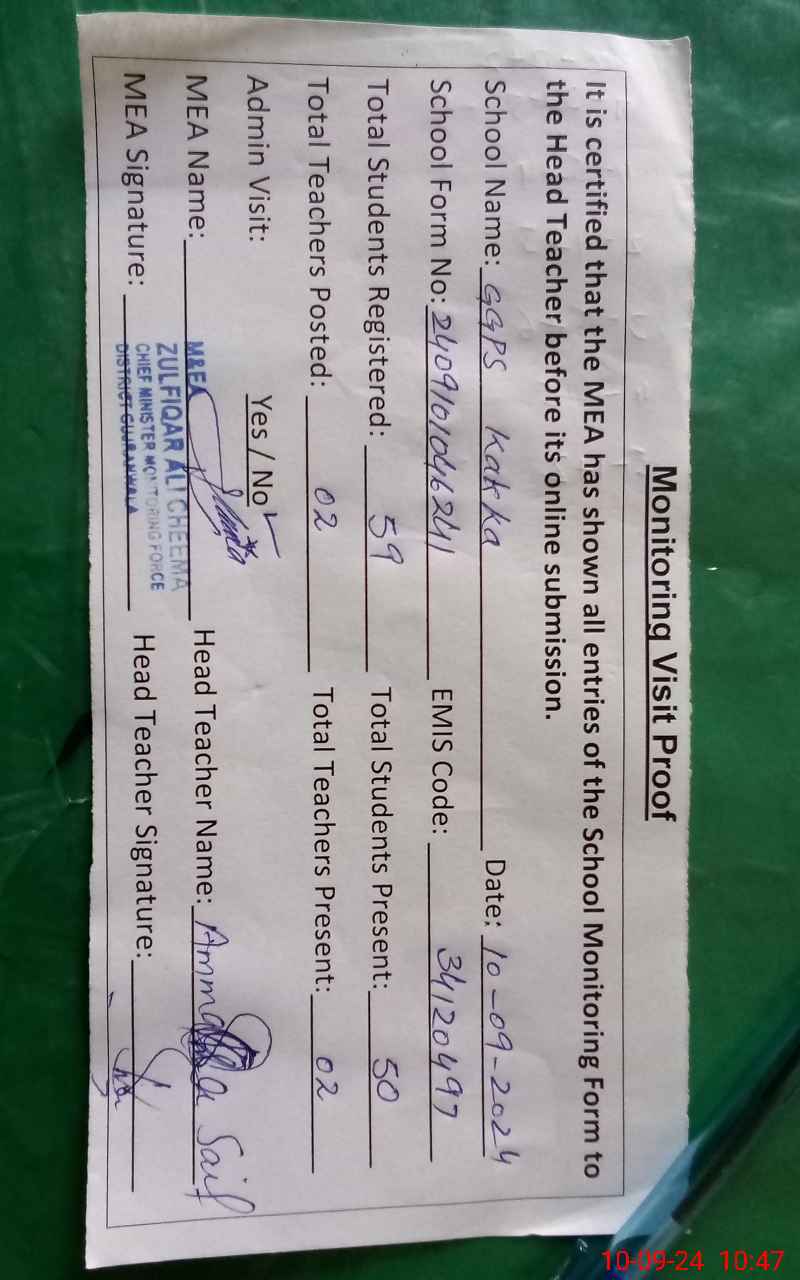 Monitoring Visit Proof
It is certified that the MEA has shown all entries of the School Monitoring Form to
the Head Teacher before its online submission.
School Name: GGPS Kakka Date: 10-09-2024
School Form No: 2409101046241 EMIS Code: 34120497
Total Students Registered: 59 Total Students Present: 50
Total Teachers Posted: 02 Total Teachers Present: 02
Admin Visit: Yes / No ✓
MEA Name: Head Teacher Name: Saif
MEA Signature: Head Teacher Signature:
M&EA
ZULFIQAR ALI CHEEMA
CHIEF MINISTER MONITORING FORCE
DISTRICT GUJRANWALA
10-09-24 10:47